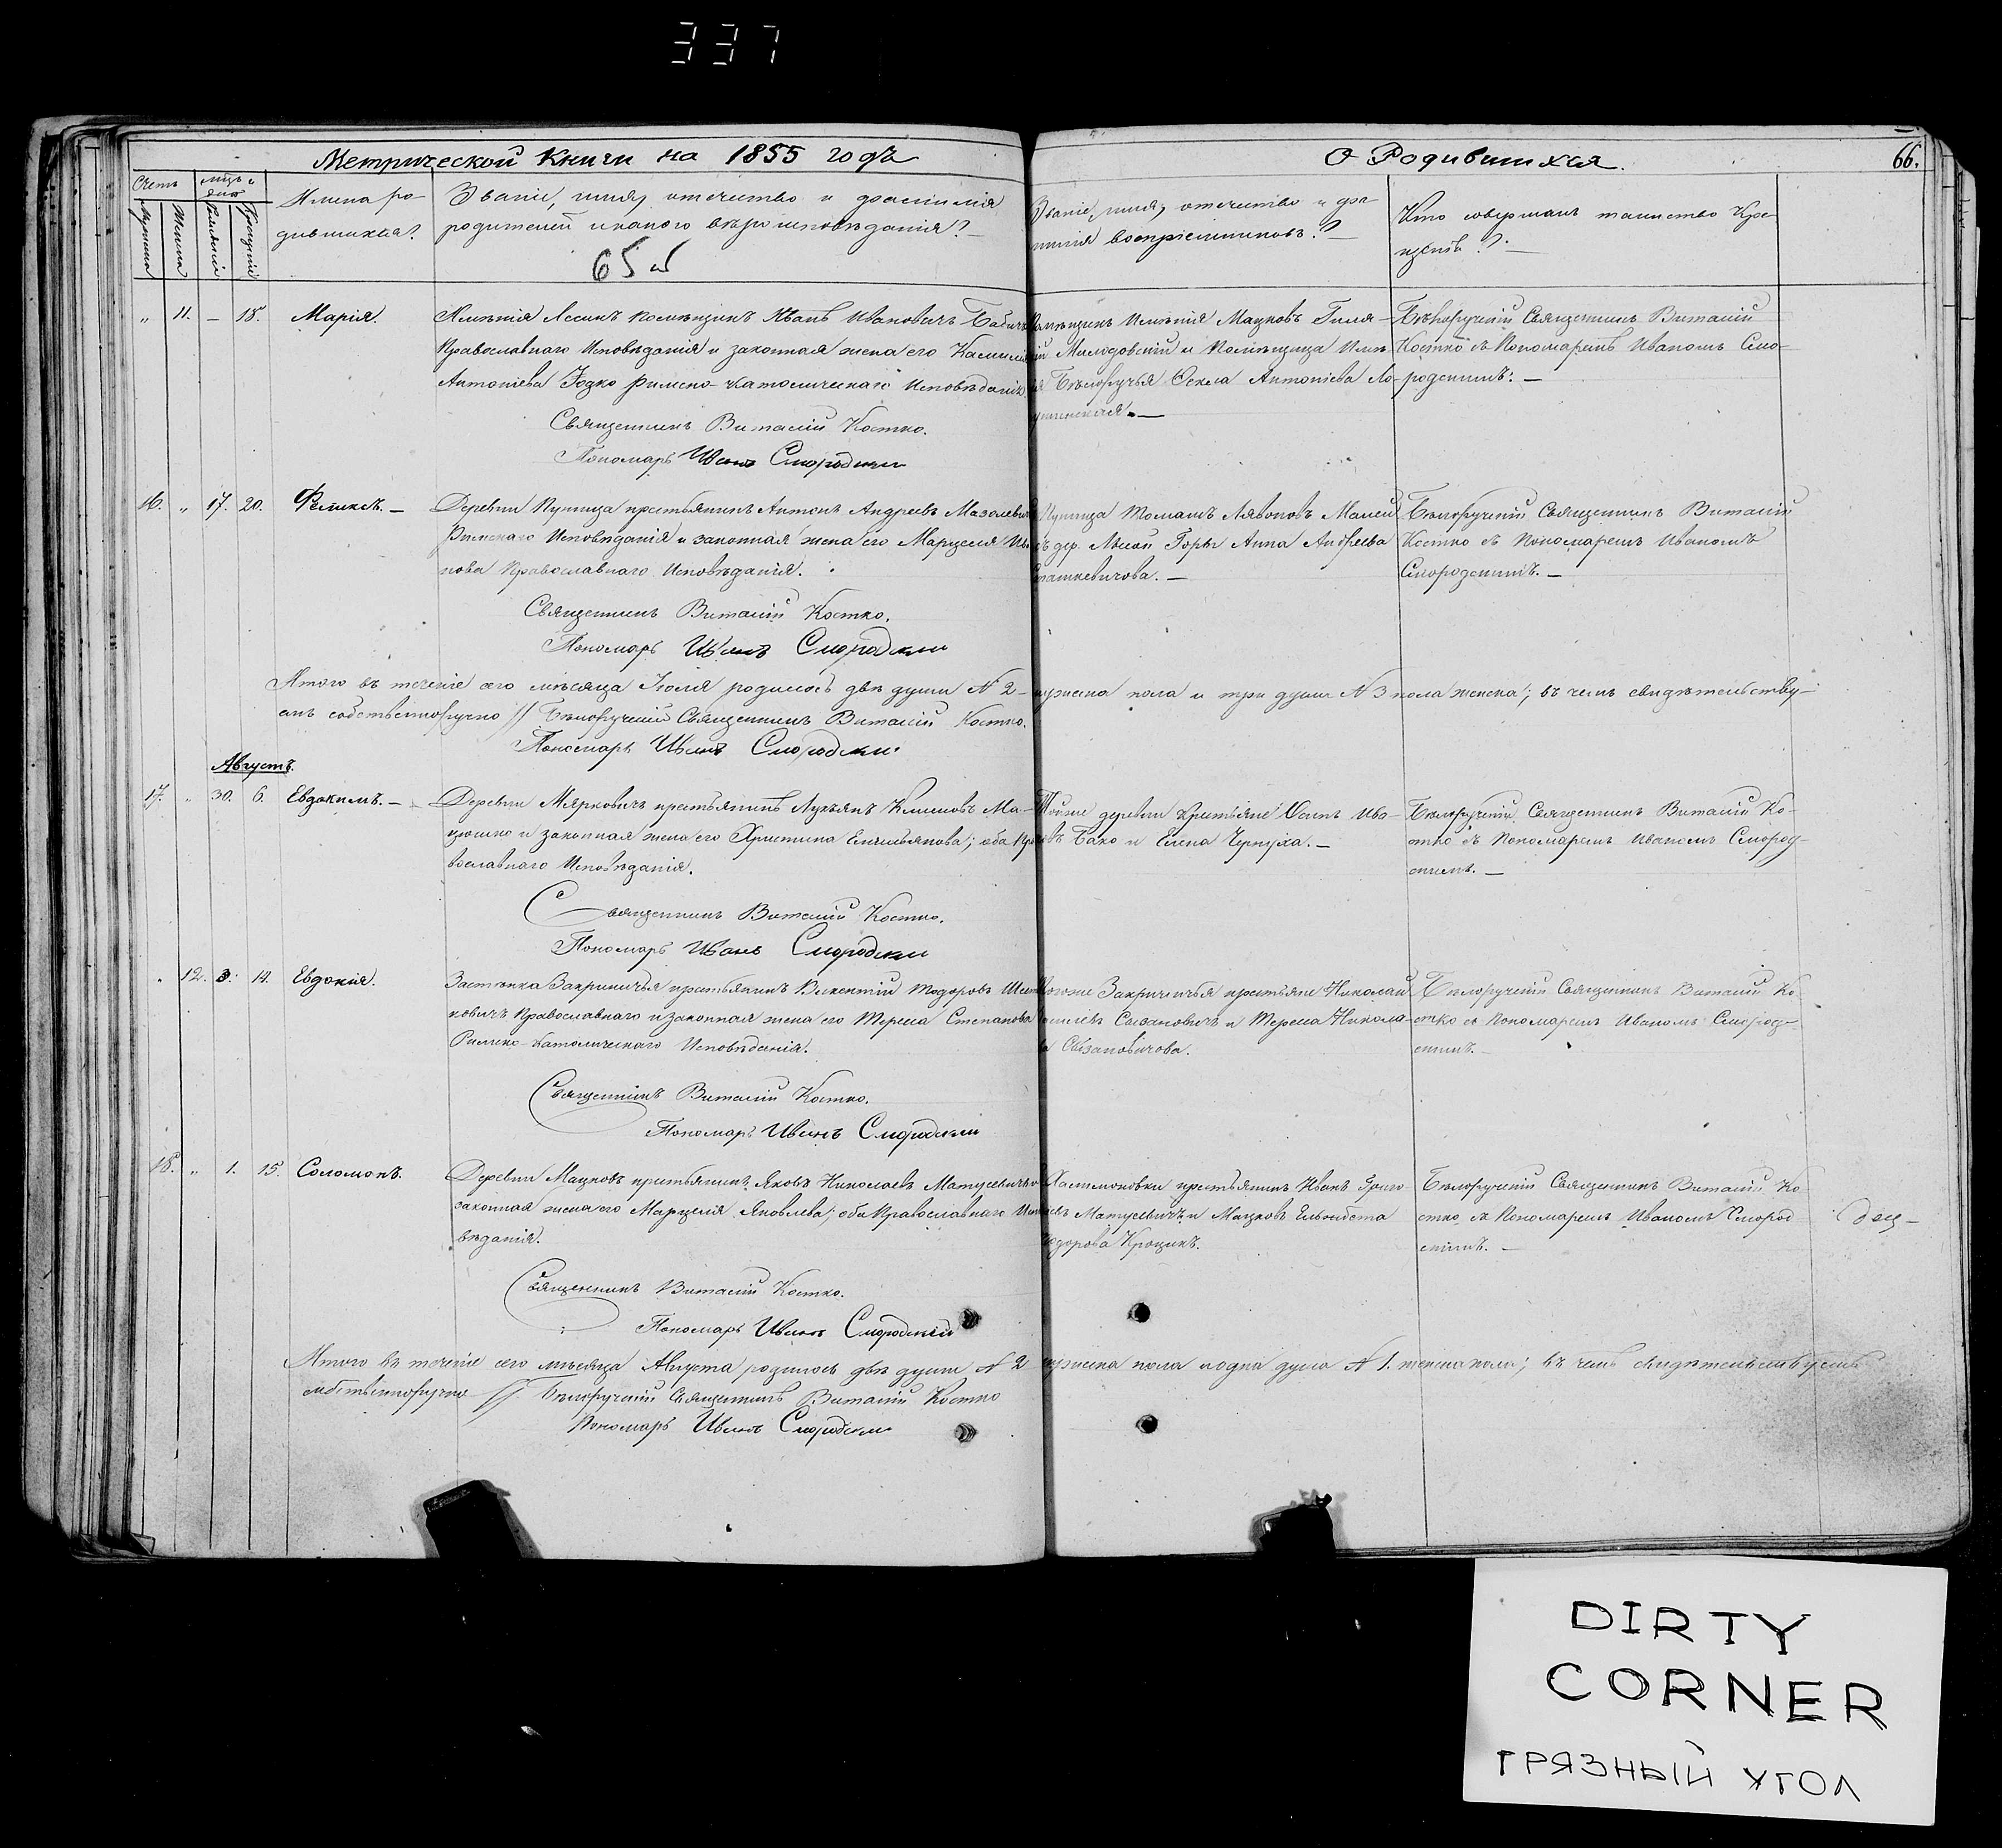 337
Метрической Книги на 1855 годъ
О Родившихся.
66.
Счетъ
мѣсъ и дня
Мужеска
Женска
Рожденія
Крещенія
Имена ро-
дившихся?
Званіе, имя, отечество и фамилія
родителей и какого вѣроисповѣданія?
65 об
Званіе, имя, отечество и фа-
милія воспріемниковъ?
Кто совершалъ таинство Кре-
щенія?
„ 11. — 18. Марія.
Имѣнія Лесинъ помѣщикъ Иванъ Ивановичъ Бабичъ
Православнаго Исповѣданія и законная жена его Камилія
Антоніева Јодко Римско-католическаго Исповѣданія.
Священникъ Виталій Костко.
Пономарь Иванъ Смородскій
Помѣщикъ Имѣнія Мацковъ Гиля-
рій Милодовскій и Помѣщица Имѣ-
нія Бѣлоручья Текля Антоніева Ло-
Бѣлоручскій Священникъ Виталій
Костко съ Пономаремъ Иваномъ Смо-
родскимъ. —
16. „ 17. 20. Феликсъ. —
Деревни Пупища крестьянинъ Антонъ Андреевъ
Римскаго Исповѣданія и законная жена его Марцеля Ива-
нова Православнаго Исповѣданія.
Священникъ Виталій Костко.
Пономарь Иванъ Смородскій
Пупища Томашъ
дер. Лысой Горы Анна Андреева
Сташкевичова. —
Бѣлоручскій Священникъ Виталій
Костко съ Пономаремъ Иваномъ
Смородскимъ. —
Итого въ теченіе сего мѣсяца Іюля родилось двѣ души N 2 мужеска пола и три души N 3 пола женска; въ чемъ свидѣтельству-
емъ собственноручно // Бѣлоручскій Священникъ Виталій Костко.
Пономарь Иванъ Смородскій
Августъ.
17. „ 30. 6. Евдокимъ. —
Деревни Мярковичъ крестьянинъ Лукьянъ Климовъ Ма-
цюшко и законная жена его Христина Емельянова; оба Пра-
вославнаго Исповѣданія.
Священникъ Виталій Костко.
Пономарь Иванъ Смородскій
Тойже деревни крестьяне Осипъ Ива-
новъ Бако и Елена Чернуха. —
Бѣлоручскій Священникъ Виталій Ко-
стко съ Пономаремъ Иваномъ Смород-
скимъ. —
„ 12. 3. 14. Евдокія.
Застѣнка Закриничья крестьянинъ Викентій Тодоровъ
ковичъ Православнаго и законная жена его Тереса Степанова
Римско-католическаго Исповѣданія.
Священникъ Виталій Костко.
Пономарь Иванъ Смородскій
Тогоже Закриничья крестьяне Николай
Сызановичъ и Тереса Никола-
ева Сызановичова.
Бѣлоручскій Священникъ Виталій Ко-
стко съ Пономаремъ Иваномъ Смород-
скимъ. —
18. „ 1. 15. Соломонъ.
Деревни Мацковъ крестьянинъ Яковъ Николаевъ Матусевичъ и
законная жена его Марцеля Яковлева; оба Православнаго Испо-
вѣданія.
Священникъ Виталій Костко.
Пономарь Иванъ Смородскій
Хасимоновки крестьянинъ Иванъ Григо-
рьевъ Матусевичъ и Мацковъ Ельжбета
Тодорова Кроцикъ.
Бѣлоручскій Священникъ Виталій Ко-
стко съ Пономаремъ Иваномъ Смород-
скимъ. —
Итого въ теченіе сего мѣсяца Августа родилось двѣ души N 2 мужеска пола и одна душа N 1. женска пола; въ чемъ свидѣтельствуемъ
собственноручно // Бѣлоручскій Священникъ Виталій Костко
Пономарь Иванъ Смородскій
DIRTY
CORNER
ГРЯЗНЫЙ УГОЛ